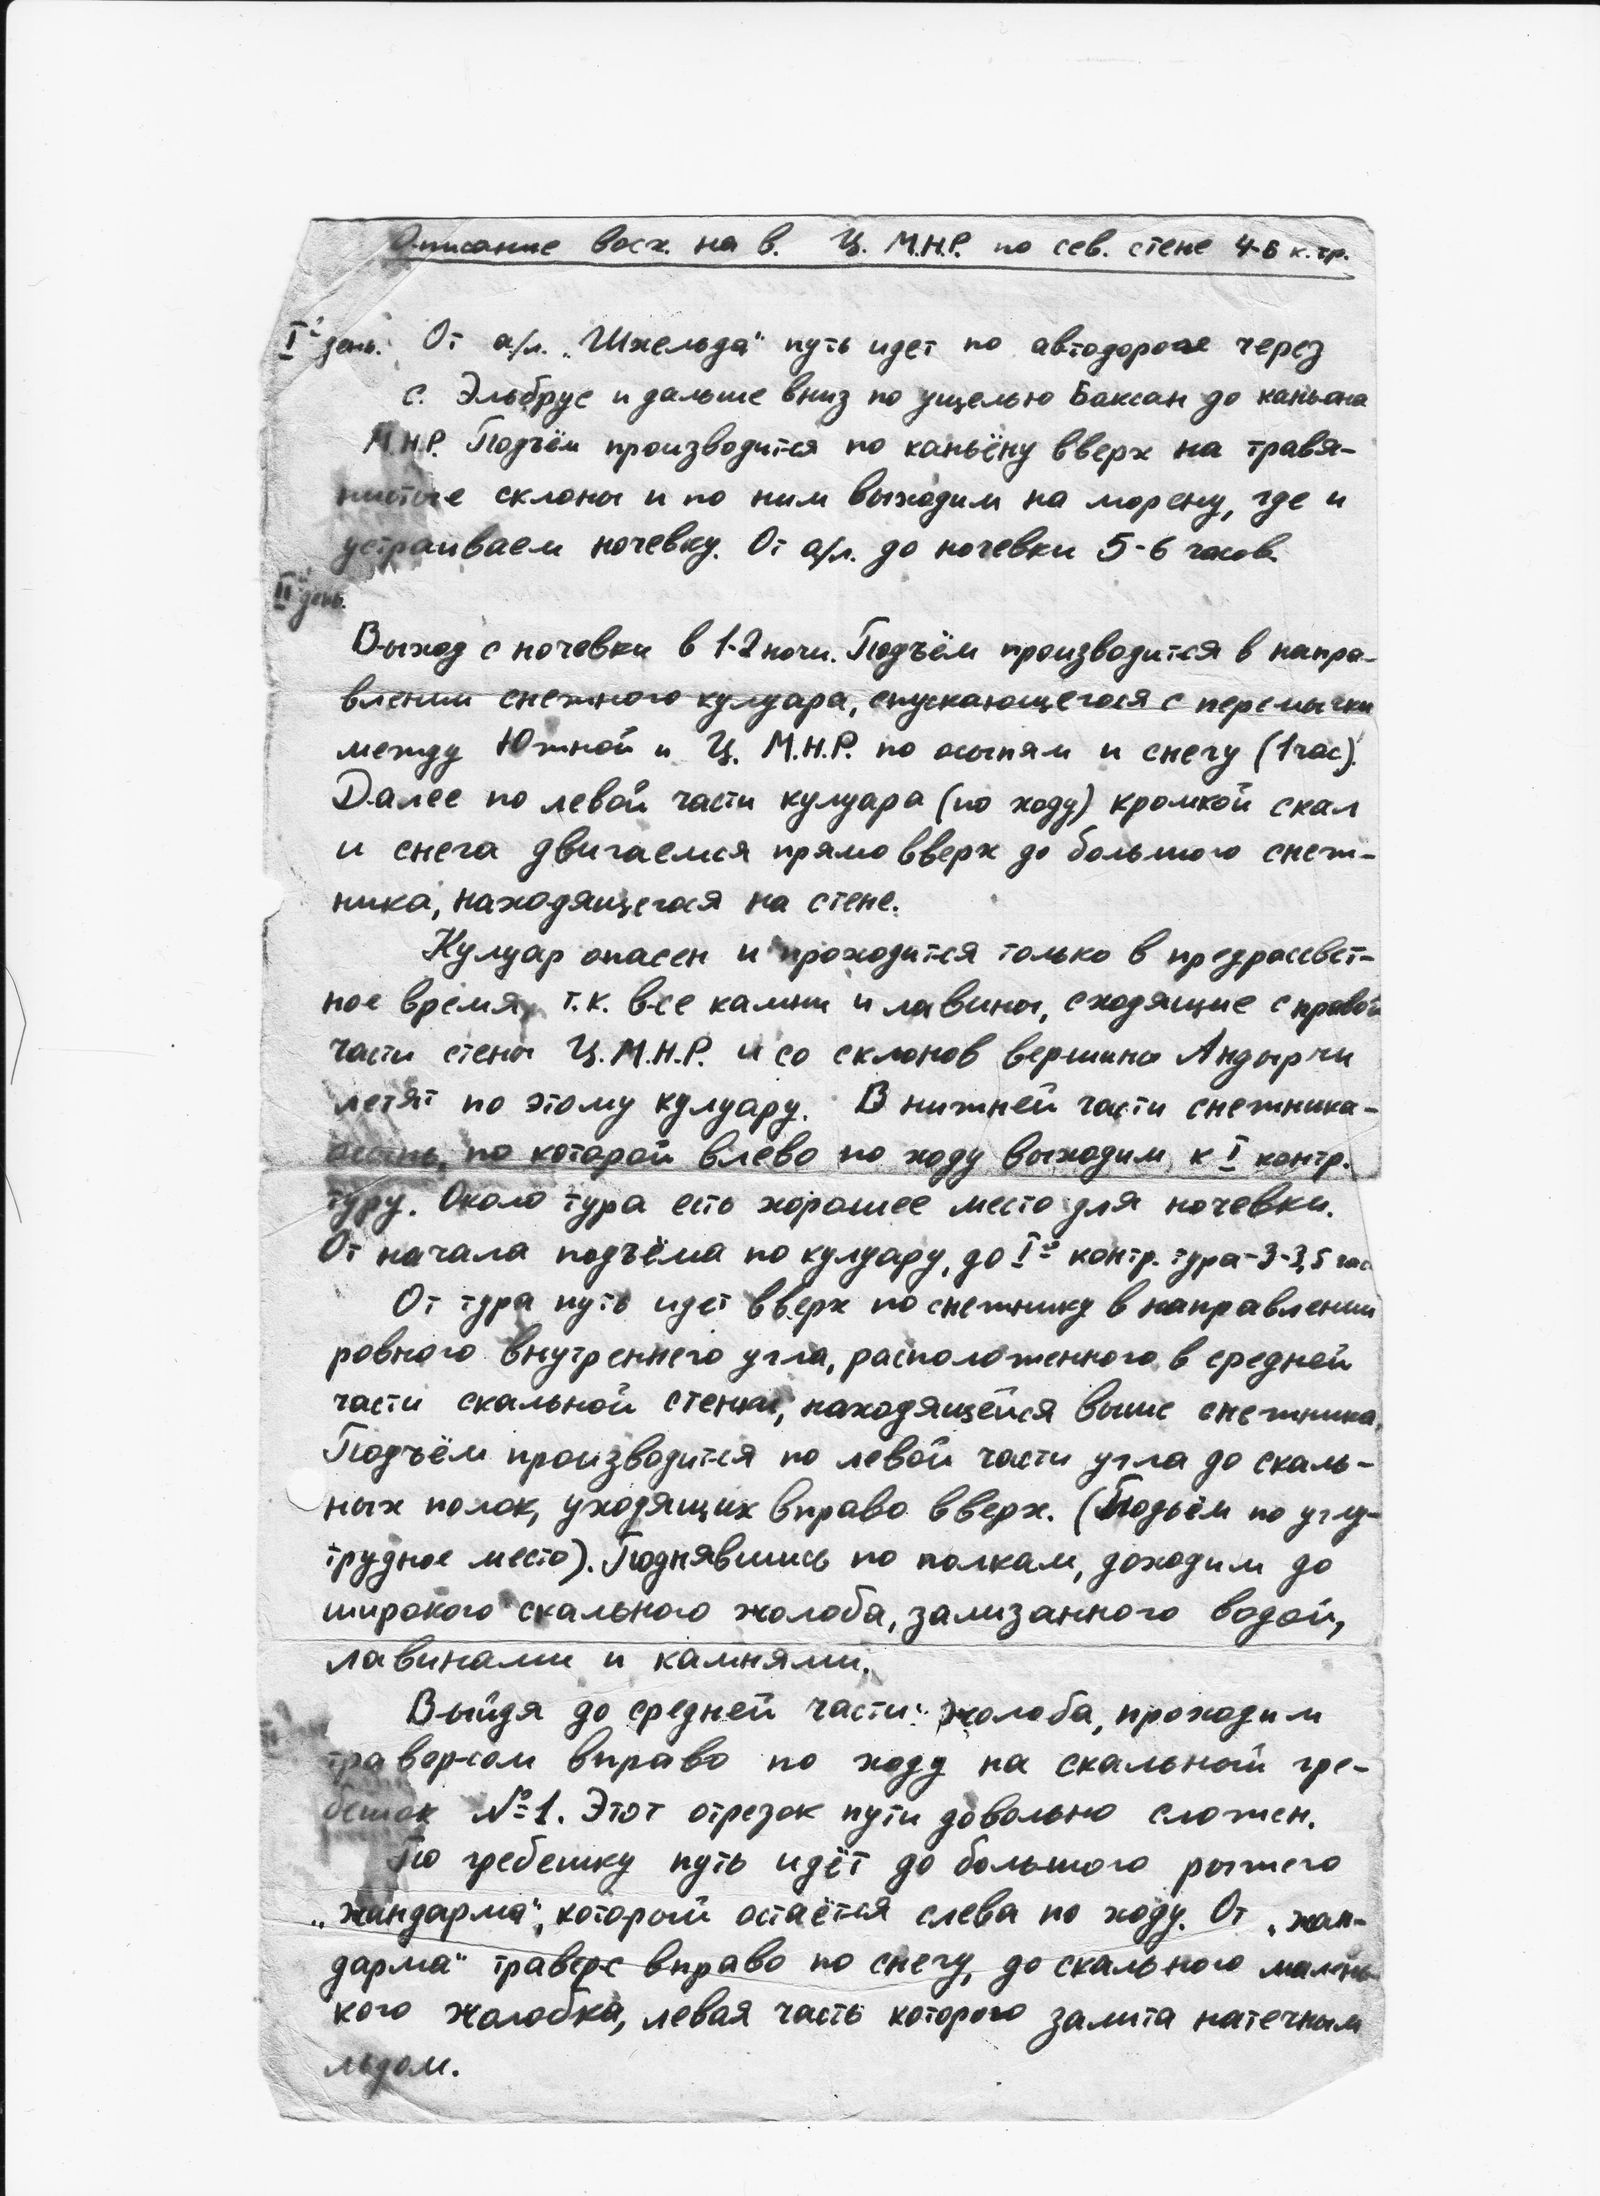 Описание восх. на в. Ц. М.Н.Р. по сев. стене 4-Б к.тр.
I й день. От а/л. „Шхельда" путь идет по автодороге через
с. Эльбрус и дальше вниз по ущелью Баксан до каньона
М.Н.Р. Подъём производится по каньёну вверх на травя-
нистые склоны и по ним выходим на морену, где и
устраиваем ночевку. От а/л. до ночевки 5-6 часов.
II й день.
Выход с ночевки в 1-2 ночи. Подъём производится в напра-
влении снежного кулуара, спускающегося с перемычки
между Южной и Ц. М.Н.Р. по осыпям и снегу (1 час).
Далее по левой части кулуара (по ходу) кромкой скал
и снега двигаемся прямо вверх до большого снеж-
ника, находящегося на стене.
Кулуар опасен и проходится только в предрассвет-
ное время, т.к. все камни и лавины, сходящие с правой
части стены Ц. М.Н.Р. и со склонов вершины Андырчи
летят по этому кулуару. В нижней части снежника -
осыпь, по которой влево по ходу выходим к I контр.
туру. Около тура есть хорошее место для ночевки.
От начала подъёма по кулуару, до I го контр. тура - 3-3,5 час
От тура путь идет вверх по снежнику в направлении
ровного внутреннего угла, расположенного в средней
части скальной стенки, находящейся выше снежника.
Подъём производится по левой части угла до скаль-
ных полок, уходящих вправо вверх. (Подъём по углу-
трудное место). Поднявшись по полкам, доходим до
широкого скального жолоба, зализанного водой,
лавинами и камнями.
Выйдя до средней части жолоба, проходим
траверсом вправо по ходу на скальный гре-
бешок №1. Этот отрезок пути довольно сложен.
По гребешку путь идёт до большого рыжего
„жандарма", который остаётся слева по ходу. От „жан-
дарма" траверс вправо по снегу, до скального малень-
кого жолобка, левая часть которого залита натечным
льдом.